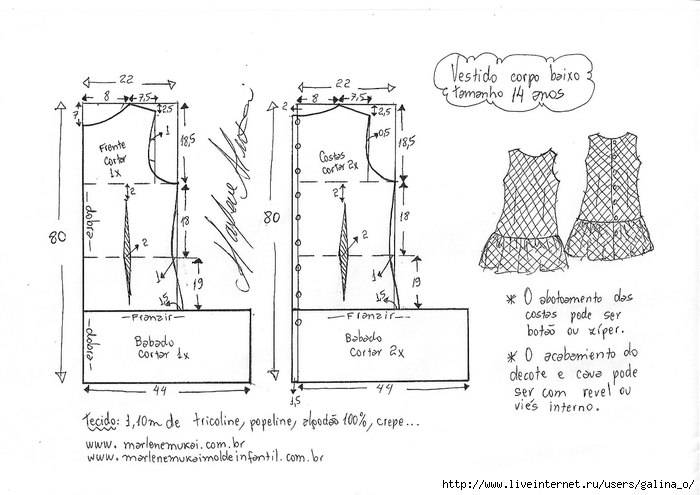 Vestido corpo baixo
tamanho 14 anos
22
8
7,5
7
2,5
1
18,5
Frente
cortar
1x
2
18
80
-dobra-
2
1
19
15
-Franzir-
-dobra-
Babado
cortar 1x
44
22
2
8
7,5
2,5
0,5
18,5
Costas
cortar 2x
2
18
80
2
1
19
1,5
-Franzir-
Babado
cortar 2x
44
1,5
* O abotoamento das
costas pode ser
botão ou zíper.
* O acabamento do
decote e cava pode
ser com revel ou
viés interno.
Tecido: 1,10m de tricoline, popeline, algodão 100%, crepe...
www.marlenemukai.com.br
www.marlenemukaimoldeinfantil.com.br
http://www.liveinternet.ru/users/galina_o/